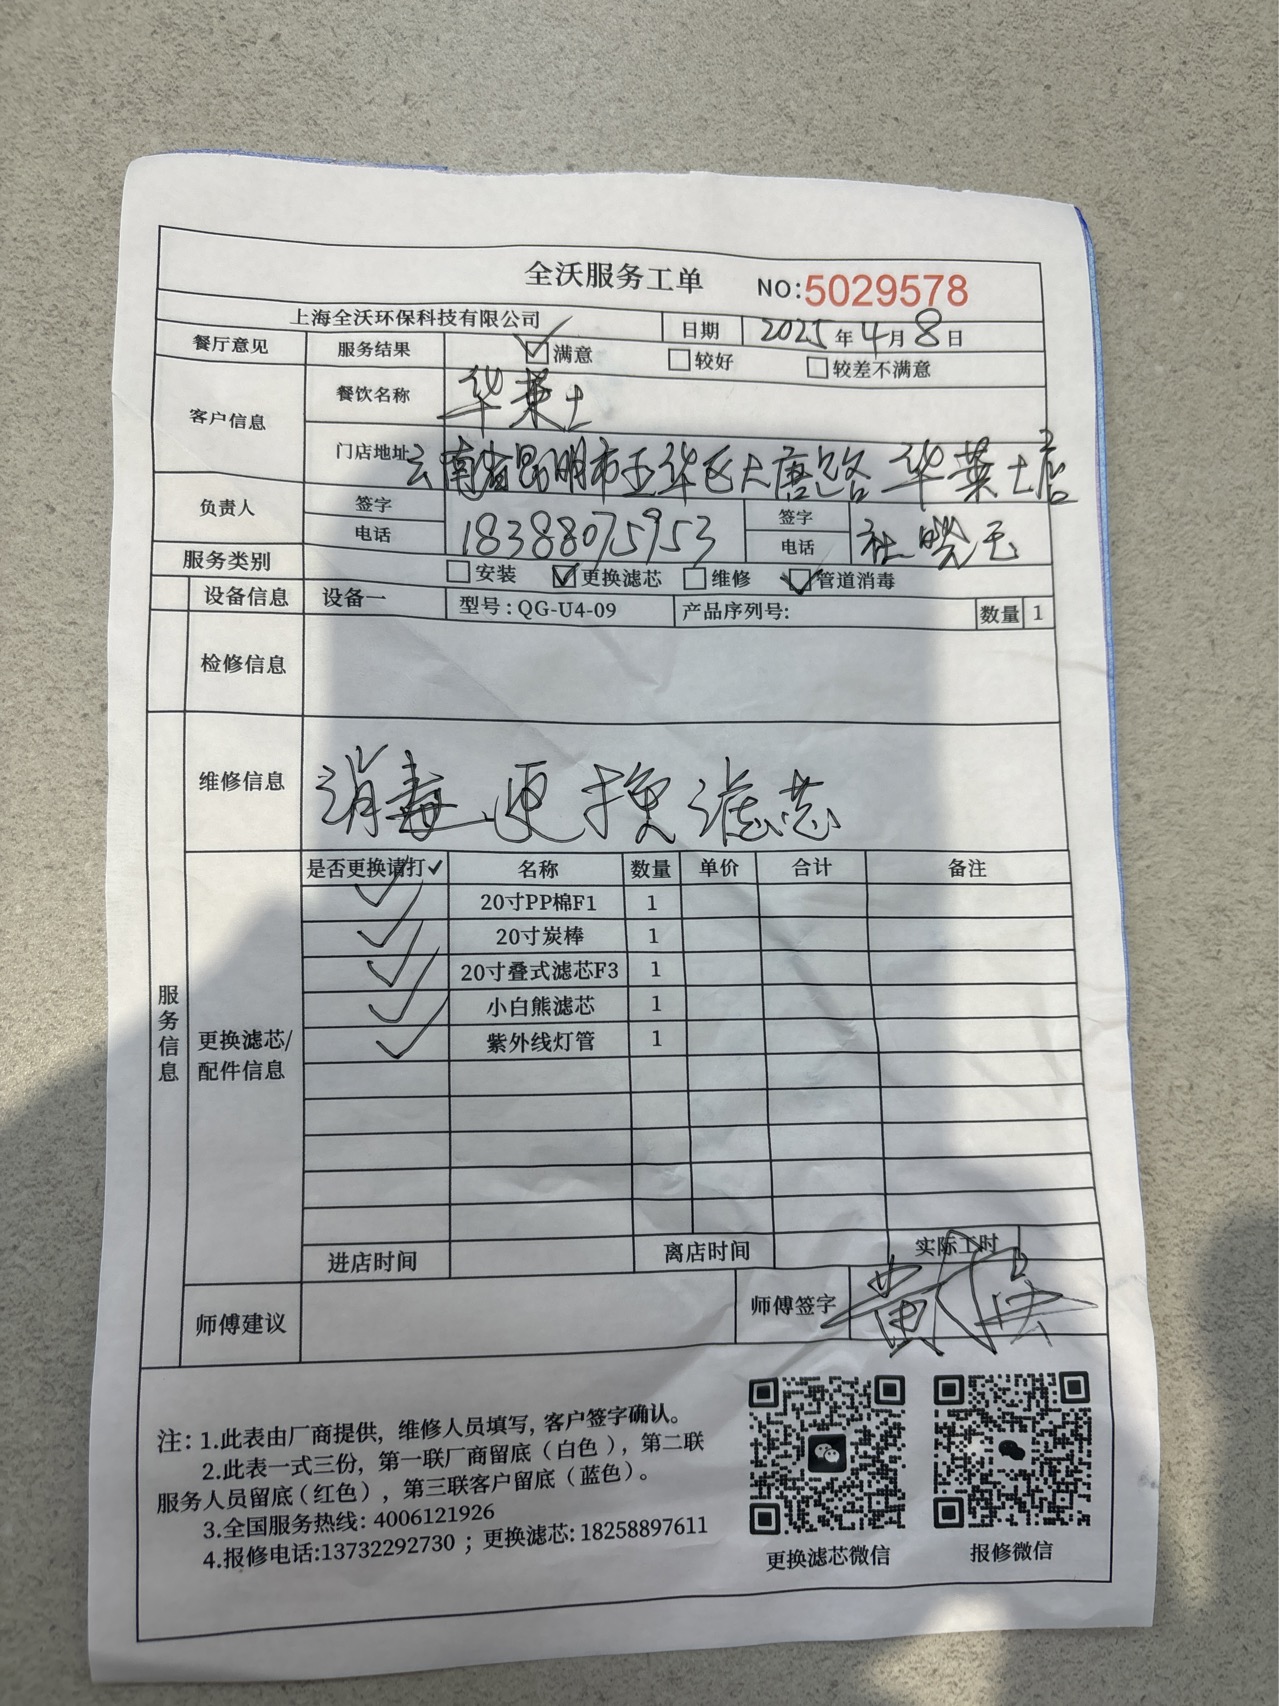 全沃服务工单 NO:5029578
上海全沃环保科技有限公司 日期 2025年4月8日
餐厅意见 服务结果 ☑满意 □较好 □较差不满意
客户信息 餐饮名称 华莱士
门店地址 云南省昆明市五华区大唐路华莱士店
负责人 签字 电话 18388075953 签字 电话 杜晓玉
服务类别 □安装 ☑更换滤芯 □维修 ☑管道消毒
设备信息 设备一 型号:QG-U4-09 产品序列号: 数量 1
检修信息
服务信息
维修信息 消毒、更换滤芯
更换滤芯/配件信息
是否更换请打✓ 名称 数量 单价 合计 备注
✓ 20寸PP棉F1 1
✓ 20寸炭棒 1
✓ 20寸叠式滤芯F3 1
✓ 小白熊滤芯 1
✓ 紫外线灯管 1
进店时间 离店时间 实际工时
师傅建议 师傅签字
注:1.此表由厂商提供,维修人员填写,客户签字确认。
2.此表一式三份,第一联厂商留底(白色),第二联
服务人员留底(红色),第三联客户留底(蓝色)。
3.全国服务热线:4006121926
4.报修电话:13732292730;更换滤芯:18258897611
更换滤芯微信 报修微信